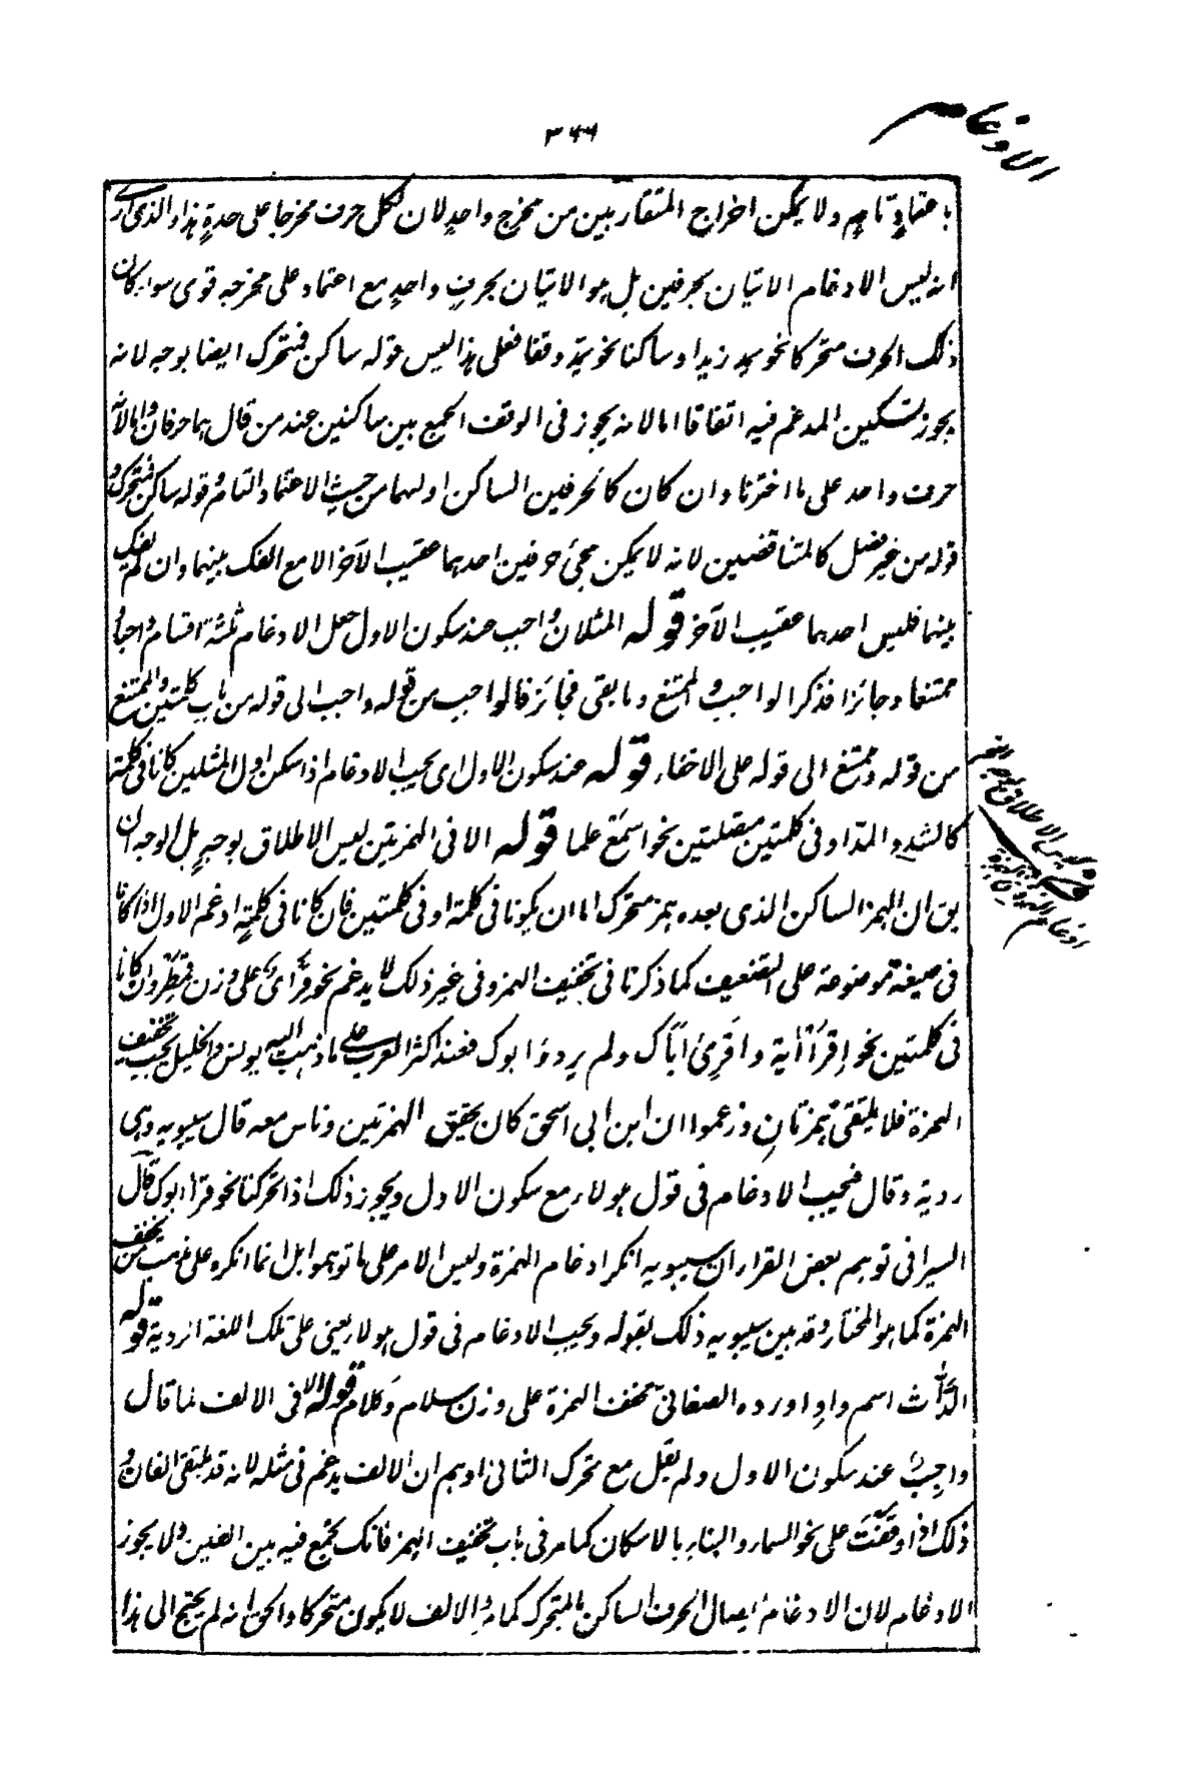 الادغام
٣٦٦
باعتمادٍ تامٍ ولا يمكن اخراج المتقاربين من مخرج واحدٍ لان لكل حرف مخرجا على حدةٍ هذا والذى ارى
انه ليس الادغام الاتيان بحرفين بل هو الاتيان بحرفٍ واحدٍ مع اعتماد على مخرجه قوى سواء كان
ذلك الحرف متحركا نحو يمد زيد او ساكنا نحو يمد وقفا فعلى هذا ليس قوله ساكن فمتحرك ايضا بوجه لانه
يجوز تسكين المدغم فيه اتفاقا اما لانه يجوز فى الوقف الجمع بين ساكنين عند من قال هما حرفان واما لانه
حرف واحد على ما اخترنا وان كان كالحرفين الساكن اولهما من حيث الاعتماد التام وقوله ساكن فمتحرك و
قوله من غير فصل كالمتناقضين لانه لا يمكن مجئ حرفين احدهما عقيب الآخر الا مع الفك بينهما وان لم يفك
بينهما فليس احدهما عقيب الآخر قوله المثلان واجب عند سكون الاول جعل الادغام ثلثة اقسام واجبا و
ممتنعا وجائزا فذكر الواجب والممتنع وما بقى فجائز فالواجب من قوله واجب الى قوله من باب كلمتين والممتنع
من قوله وممتنع الى قوله على الاخفاء قوله عند سكون الاول اى يجب الادغام اذا سكن اول المثلين كانا فى كلمة
كالشد والمد او فى كلمتين متصلتين نحو اسمع علما قوله الا فى الهمزتين ليس الاطلاق بوجهٍ بل الوجه ان
يق ان الهمز الساكن الذى بعده همز متحرك اما ان يكونا فى كلمة او فى كلمتين فان كانا فى كلمةٍ ادغم الاول اذا كانا
فى صيغة موضوعة على التضعيف كما ذكرنا فى تخفيف الهمز وفى غير ذلك لا يدغم نحو قرأى على وزن قمطر وان كانا
فى كلمتين نحو اقرأ آية واقرئ اباك ولم يردؤ ابوك فعند اكثر العرب على ما ذهب اليه يونس والخليل يجب تخفيف
الهمزة فلا يلتقى همزتان وزعموا ان ابن ابى اسحق كان يحقق الهمزتين وناس معه قال سيبويه وهى
ردية وقال فيجب الادغام فى قول هولاء مع سكون الاول ويجوز ذلك اذا تحركتا نحو قرأ ابوك قال
السيرافى توهم بعض القراء ان سيبويه انكر ادغام الهمزة وليس الامر على ما توهموا بل انما انكره على مذهب من يخفف
الهمزة كما هو المختار وقد بين سيبويه ذلك بقوله ويجب الادغام فى قول هولاء يعنى على تلك اللغة الردية قوله
الدأاث اسم وادٍ اورده الصغانى مخفف الهمزة على وزن سلام وكلام قوله الا فى الالف لما قال
واجب عند سكون الاول ولم يقل مع تحرك الثانى اوهم ان الالف يدغم فى مثله لانه قد يلتقى الفان و
ذلك اذا وقفت على نحو السماء والبناء بالاسكان كما مر فى باب تخفيف الهمز فانك تجمع فيه بين الفين ولا يجوز
الادغام لان الادغام ايصال الحرف الساكن بالمتحرك كما مر والالف لا يكون متحركا والحق انه لم يحتج الى هذا
قوله ليس الاطلاق بوجه